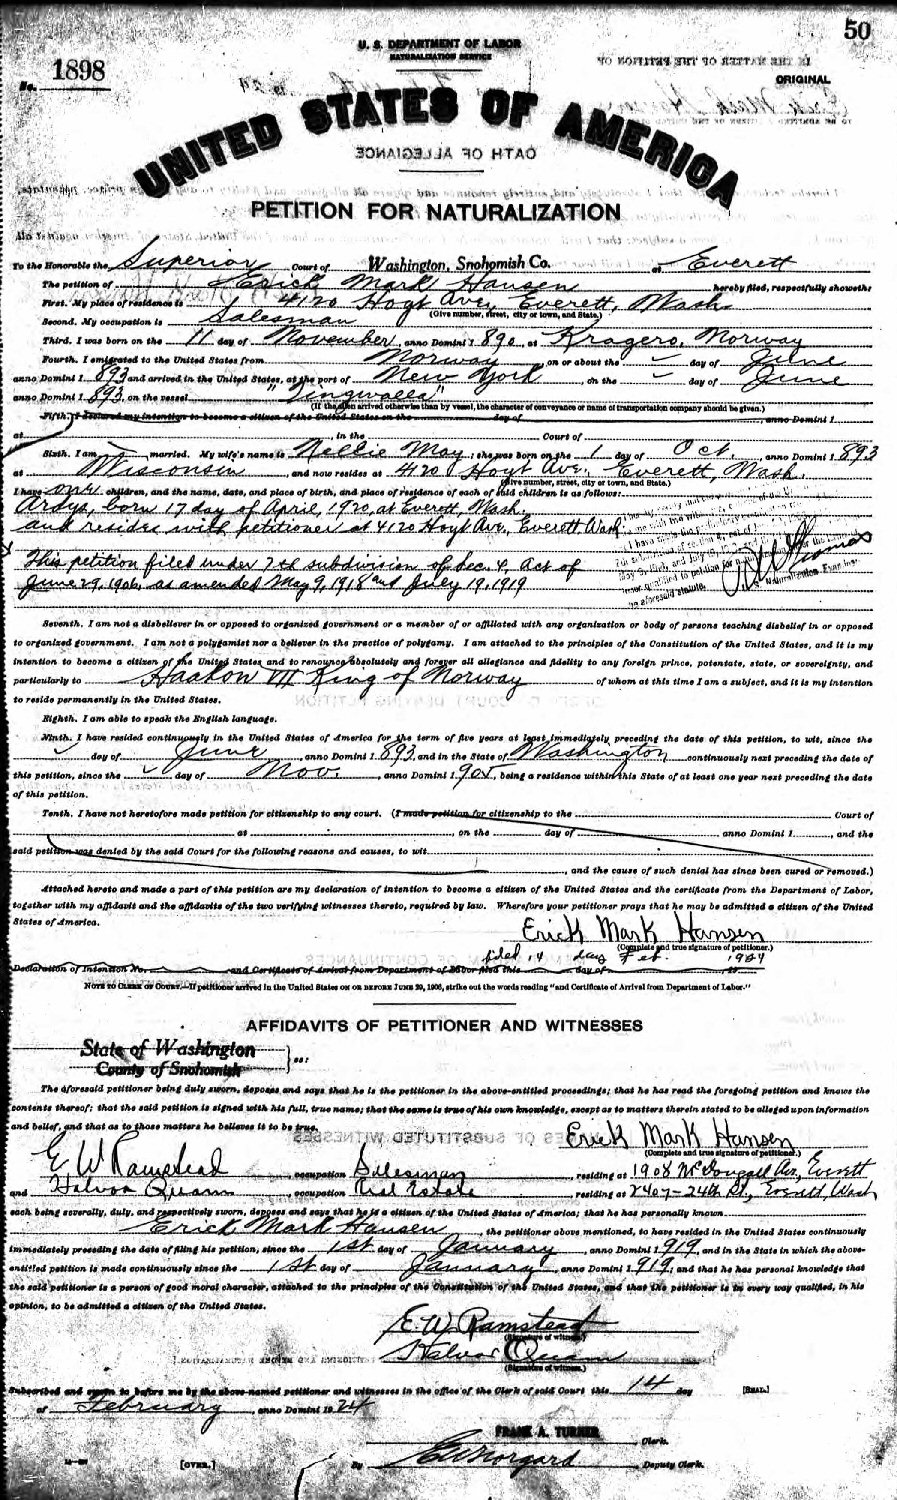 50
U. S. DEPARTMENT OF LABOR
NATURALIZATION SERVICE
No. 1898
ORIGINAL
UNITED STATES OF AMERICA
OATH OF ALLEGIANCE
PETITION FOR NATURALIZATION
To the Honorable the Superior Court of Washington, Snohomish Co. at Everett
The petition of Erick Mark Hansen hereby filed, respectfully showeth:
First. My place of residence is 4120 Hoyt Ave, Everett, Wash.
(Give number, street, city or town, and State.)
Second. My occupation is Salesman
Third. I was born on the 11 day of November, anno Domini 1890, at Kragero, Norway
Fourth. I emigrated to the United States from Norway on or about the day of June
anno Domini 1893 and arrived in the United States, at the port of New York on the day of June
anno Domini 1893, on the vessel "Vingwalla"
(If the alien arrived otherwise than by vessel, the character of conveyance or name of transportation company should be given.)
Fifth. I declared my intention to become a citizen of the United States on the day of , anno Domini 1
at , in the Court of
Sixth. I am married. My wife's name is Nellie May; she was born on the 1 day of Oct., anno Domini 1893
at Wisconsin and now resides at 4120 Hoyt Ave., Everett, Wash.
(Give number, street, city or town, and State.)
I have one children, and the name, date, and place of birth, and place of residence of each of said children is as follows:
Ardys, born 17 day of April, 1920, at Everett, Wash.
and resides with petitioner at 4120 Hoyt Ave, Everett Wash
This petition filed under 7th subdivision of Sec. 4, Act of
June 29, 1906, as amended May 9, 1918 and July 19, 1919
Seventh. I am not a disbeliever in or opposed to organized government or a member of or affiliated with any organization or body of persons teaching disbelief in or opposed
to organized government. I am not a polygamist nor a believer in the practice of polygamy. I am attached to the principles of the Constitution of the United States, and it is my
intention to become a citizen of the United States and to renounce absolutely and forever all allegiance and fidelity to any foreign prince, potentate, state, or sovereignty, and
particularly to Haakon VII King of Norway of whom at this time I am a subject, and it is my intention
to reside permanently in the United States.
Eighth. I am able to speak the English language.
Ninth. I have resided continuously in the United States of America for the term of five years at least immediately preceding the date of this petition, to wit, since the
day of June, anno Domini 1893, and in the State of Washington continuously next preceding the date of
this petition, since the day of Nov., anno Domini 1905, being a residence within this State of at least one year next preceding the date
of this petition.
Tenth. I have not heretofore made petition for citizenship to any court. (I made petition for citizenship to the Court of
at , on the day of anno Domini 1 , and the
said petition was denied by the said Court for the following reasons and causes, to wit
, and the cause of such denial has since been cured or removed.)
Attached hereto and made a part of this petition are my declaration of intention to become a citizen of the United States and the certificate from the Department of Labor,
together with my affidavit and the affidavits of the two verifying witnesses thereto, required by law. Wherefore your petitioner prays that he may be admitted a citizen of the United
States of America.
Erick Mark Hansen
(Complete and true signature of petitioner.)
filed 14 day Feb. 1924
Declaration of Intention No. and Certificate of Arrival from Department of Labor filed this day of
NOTE TO CLERK OF COURT.—If petitioner arrived in the United States ON OR BEFORE JUNE 29, 1906, strike out the words reading "and Certificate of Arrival from Department of Labor."
AFFIDAVITS OF PETITIONER AND WITNESSES
State of Washington
County of Snohomish
ss:
The aforesaid petitioner being duly sworn, deposes and says that he is the petitioner in the above-entitled proceedings; that he has read the foregoing petition and knows the
contents thereof; that the said petition is signed with his full, true name; that the same is true of his own knowledge, except as to matters therein stated to be alleged upon information
and belief, and that as to those matters he believes it to be true.
Erick Mark Hansen
(Complete and true signature of petitioner.)
E W Ramstead, occupation Salesman, residing at 1908 McDougall Av, Everett
and Halvor Quam, occupation Real Estate, residing at 2407-24th St., Everett, Wash
each being severally, duly, and respectively sworn, deposes and says that he is a citizen of the United States of America; that he has personally known
Erick Mark Hansen, the petitioner above mentioned, to have resided in the United States continuously
immediately preceding the date of filing his petition, since the 1st day of January, anno Domini 1919, and in the State in which the above-
entitled petition is made continuously since the 1st day of January, anno Domini 1919, and that he has personal knowledge that
the said petitioner is a person of good moral character, attached to the principles of the Constitution of the United States, and that the petitioner is in every way qualified, in his
opinion, to be admitted a citizen of the United States.
E. W. Ramstead
(Signature of witness.)
Halvor Quam
(Signature of witness.)
Subscribed and sworn to before me by the above-named petitioner and witnesses in the office of the Clerk of said Court this 14 day
[SEAL.]
of February, anno Domini 1924
FRANK A. TURNER, Clerk.
[OVER.]
By E W Norgard, Deputy Clerk.